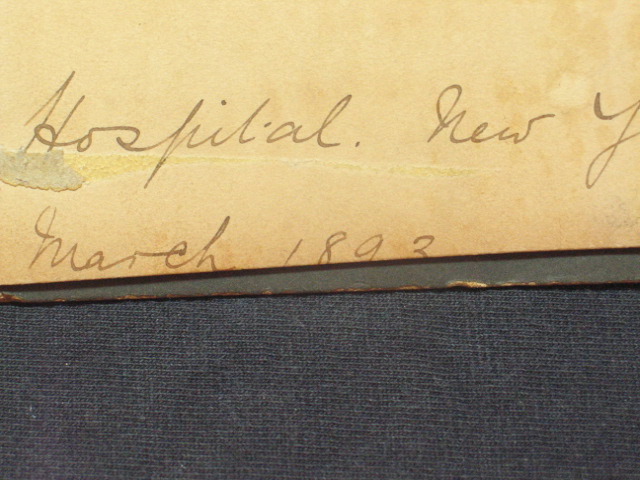 Hospital. New Y
March 1893